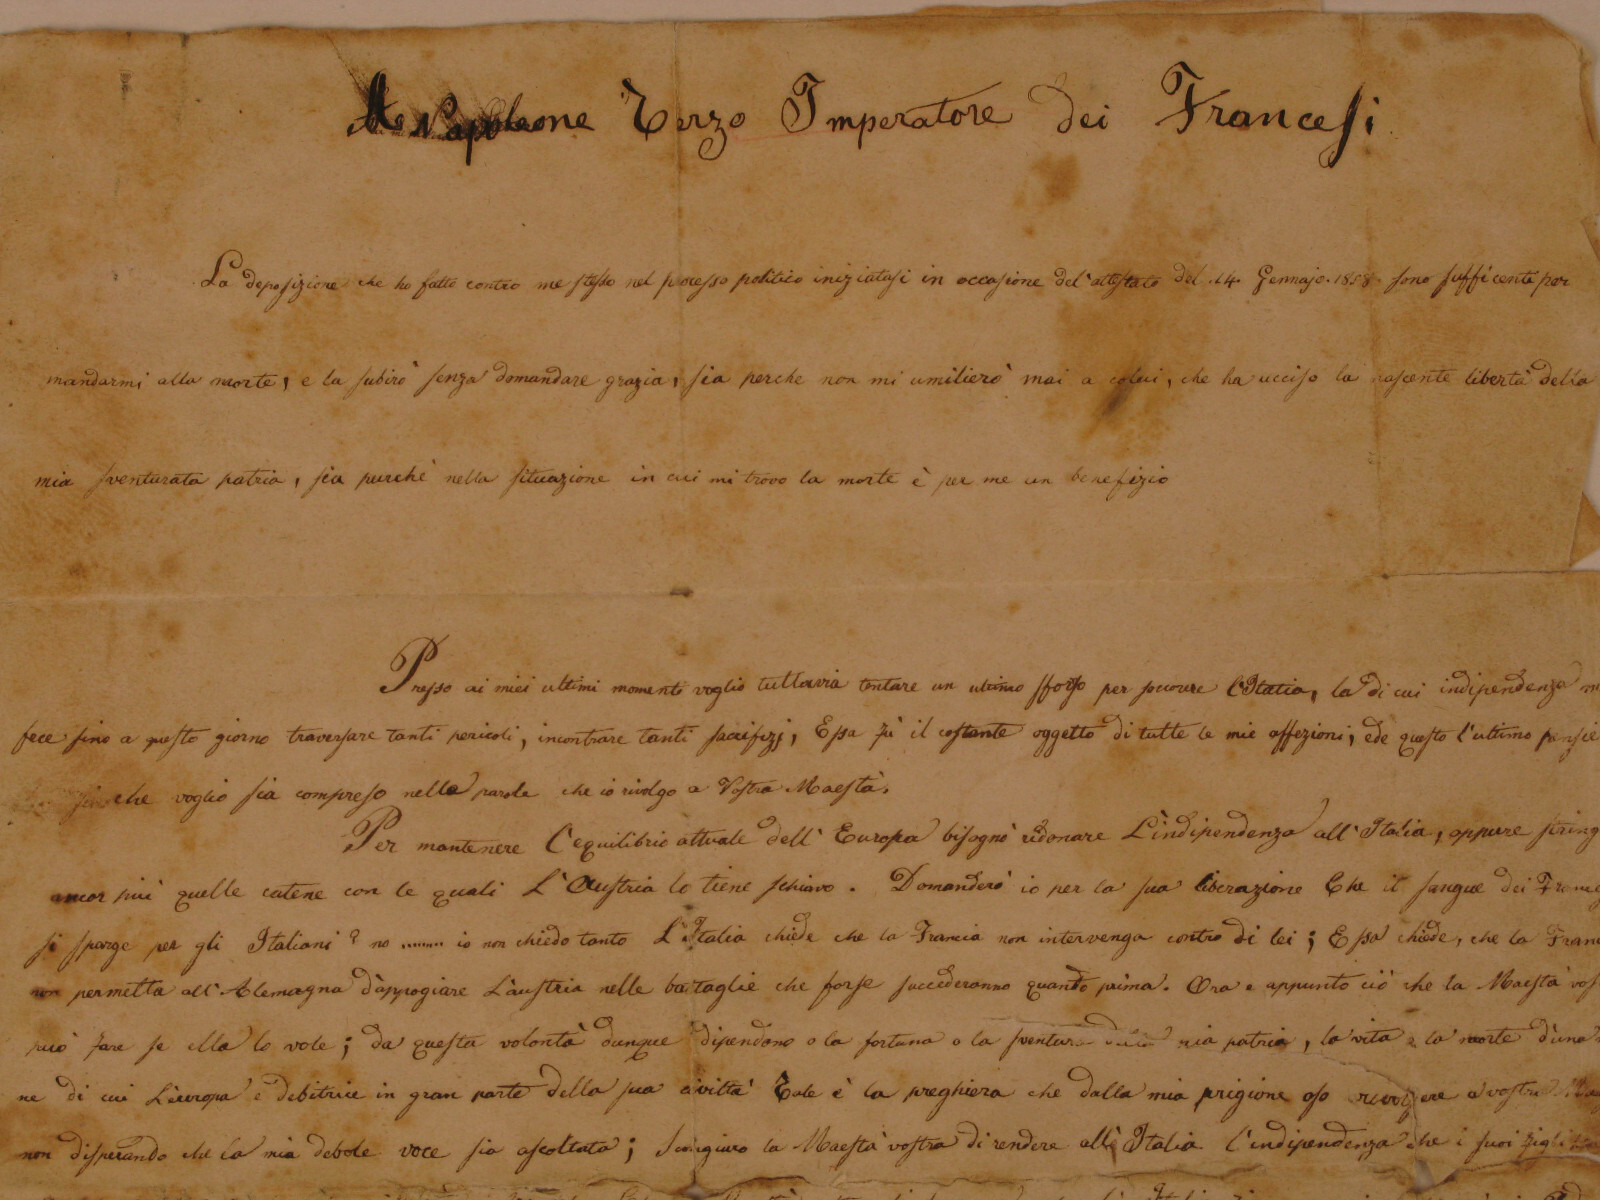 A Napoleone Terzo Imperatore dei Francesi
La deposizione che ho fatto contro me stesso nel processo politico iniziatasi in occasione del'attestato del .14. Gennajo. 1858. sono sufficente per
mandarmi alla morte, e la subirò senza domandare grazia, sia perche non mi umilierò mai a colui, che ha ucciso la nascente libertà della
mia sventurata patria, sia purchè nella situazione in cui mi trovo la morte è per me un benefizio
Presso ai miei ultimi momenti voglio tuttavia tentare un ultimo sforso per socorre l'Italia, la di cui indipendenza
fece sino a questo giorno traversare tanti pericoli, incontrare tanti sacrifizj, Essa fù il costante oggetto di tutte le mie affezioni, ede questo l'ultimo
che voglio sia compreso nelle parole che io rivolgo a Vostra Maestà.
Per mantenere l'equilibrio attuale dell'Europa bisognò ridonare L'indipendenza all'Italia, oppure
ancor più quelle catene con le quali L'Austria la tiene schiava. Domanderò io per la sua liberazione Che il sangue dei
si sparge per gli Italiani? no ....... io non chiedo tanto L'Italia chiede che la Francia non intervenga contro di lei; Essa chiede, che la
non permetta all'Alemagna d'appogiare L'austria nelle battaglie che forse succederanno quanto prima. Ora e appunto ciò che la Maestà
può fare se ella lo vole; da questa volontà dunque dipendono o la fortuna o la sventura della mia patria, la vita e la morte d'una
ne di cui L'europa e debitrice in gran parte della sua civiltà Tale è la preghiera che dalla mia prigione oso rivolgere a vostra
non disperando che la mia debole voce sia ascoltata; Scongiuro la Maestà vostra di rendere all'Italia l'indipendenza che i suoi figli